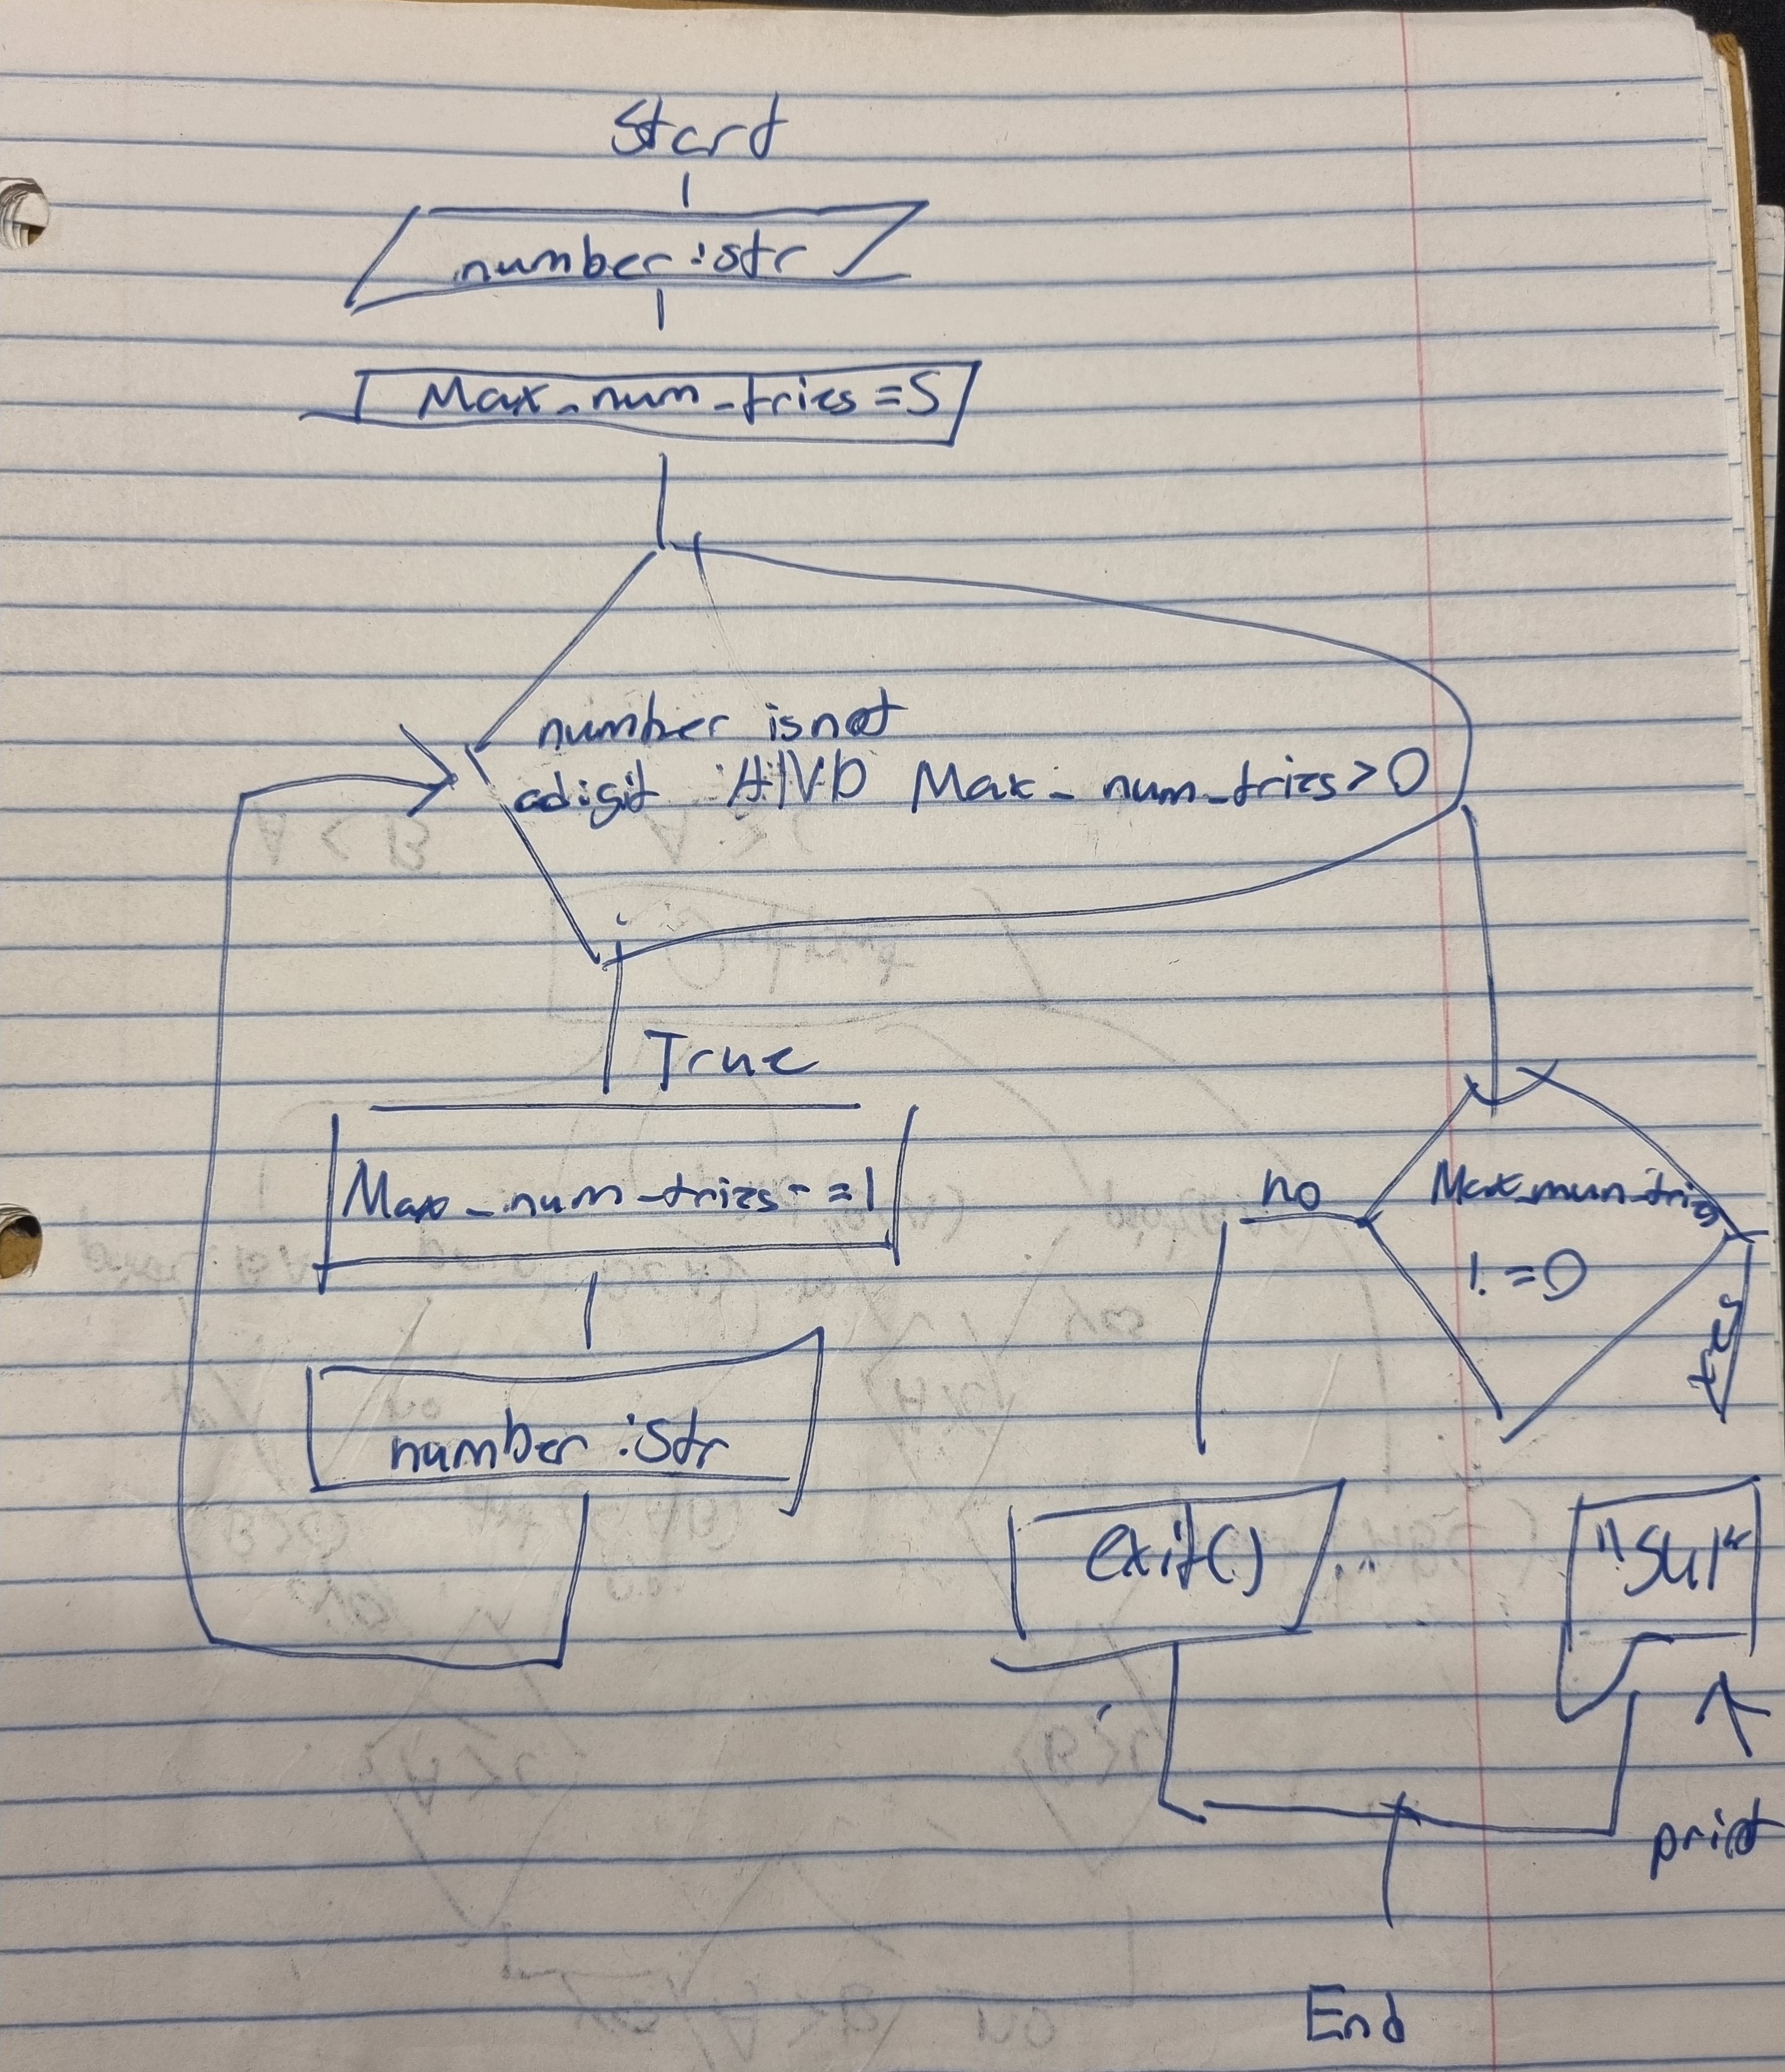 Start
number :str
Max_num_tries =5
number is not
a digit AND Max_num_tries>0
True
Max_num_tries-=1
no
Max_mun_tries
!=0
yes
number :str
exit()
print
End